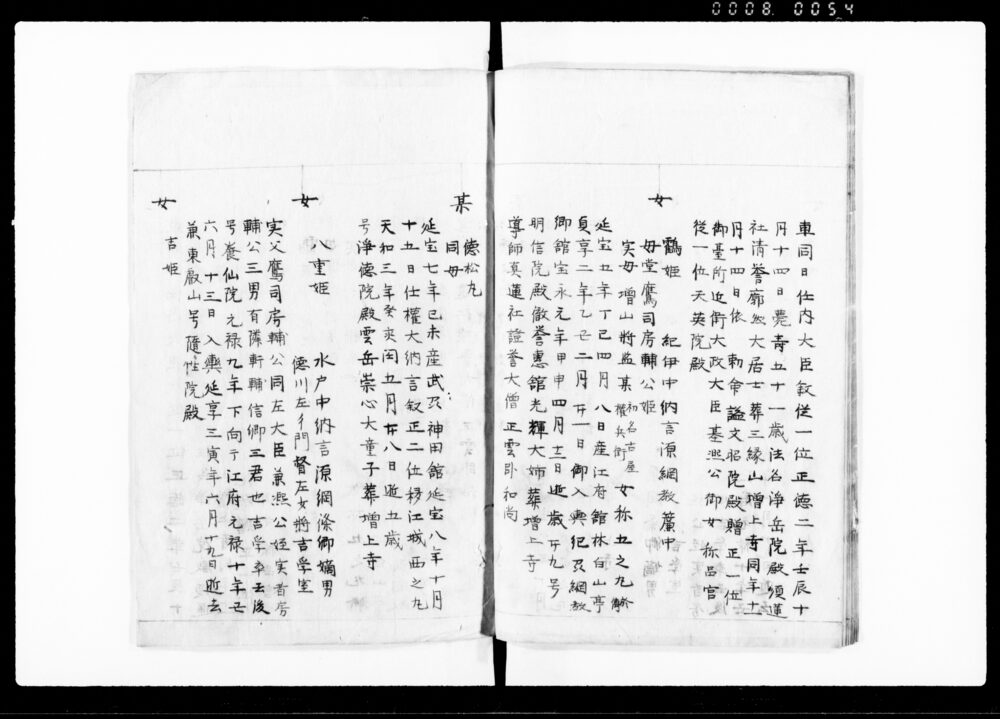 0008 0054
車同日任内大臣叙従一位正徳二年壬辰十
月十四日薨壽五十一歳法名淨岳院殿須蓮
社清譽廓然大居士葬三縁山増上寺同年十一
月十四日依 勅命謚文昭院殿贈正一位
御臺所近衛大政大臣基凞公御女 称品宮
従一位天英院殿
女
鶴姫 紀伊中納言源綱教簾中
母堂鷹司房輔公姫
実母増山將監某 初名古屋權兵衛 女称五之丸
延宝五年丁巳四月八日産江府館林白山亭
貞享二年乙丑二月廿一日御入輿紀刕綱教
卿館宝永元年甲申四月十二日逝歳廿九号
明信院殿徹誉惠館光輝大姉葬増上寺
導師真蓮社證誉大僧正雲卧和尚
某
徳松丸
同母
延宝七年己未産武刕神田館延宝八年十月
十五日任權大納言叙正二位移江城西之丸
天和三年癸亥閏五月廿八日逝五歳
号淨徳院殿霊岳崇心大童子葬増上寺
女
八重姫 水戸中納言源綱條卿嫡男
徳川左衛門督左女將吉学室
実父鷹司房輔公同左大臣兼凞公姪実者房
輔公三男有隣軒輔信卿三君也吉学卒去後
号養仙院元禄九年下向于江府元禄十年
六月十三日入輿延享三寅年六月十九日逝去
葬東叡山号隨性院殿
女
吉姫